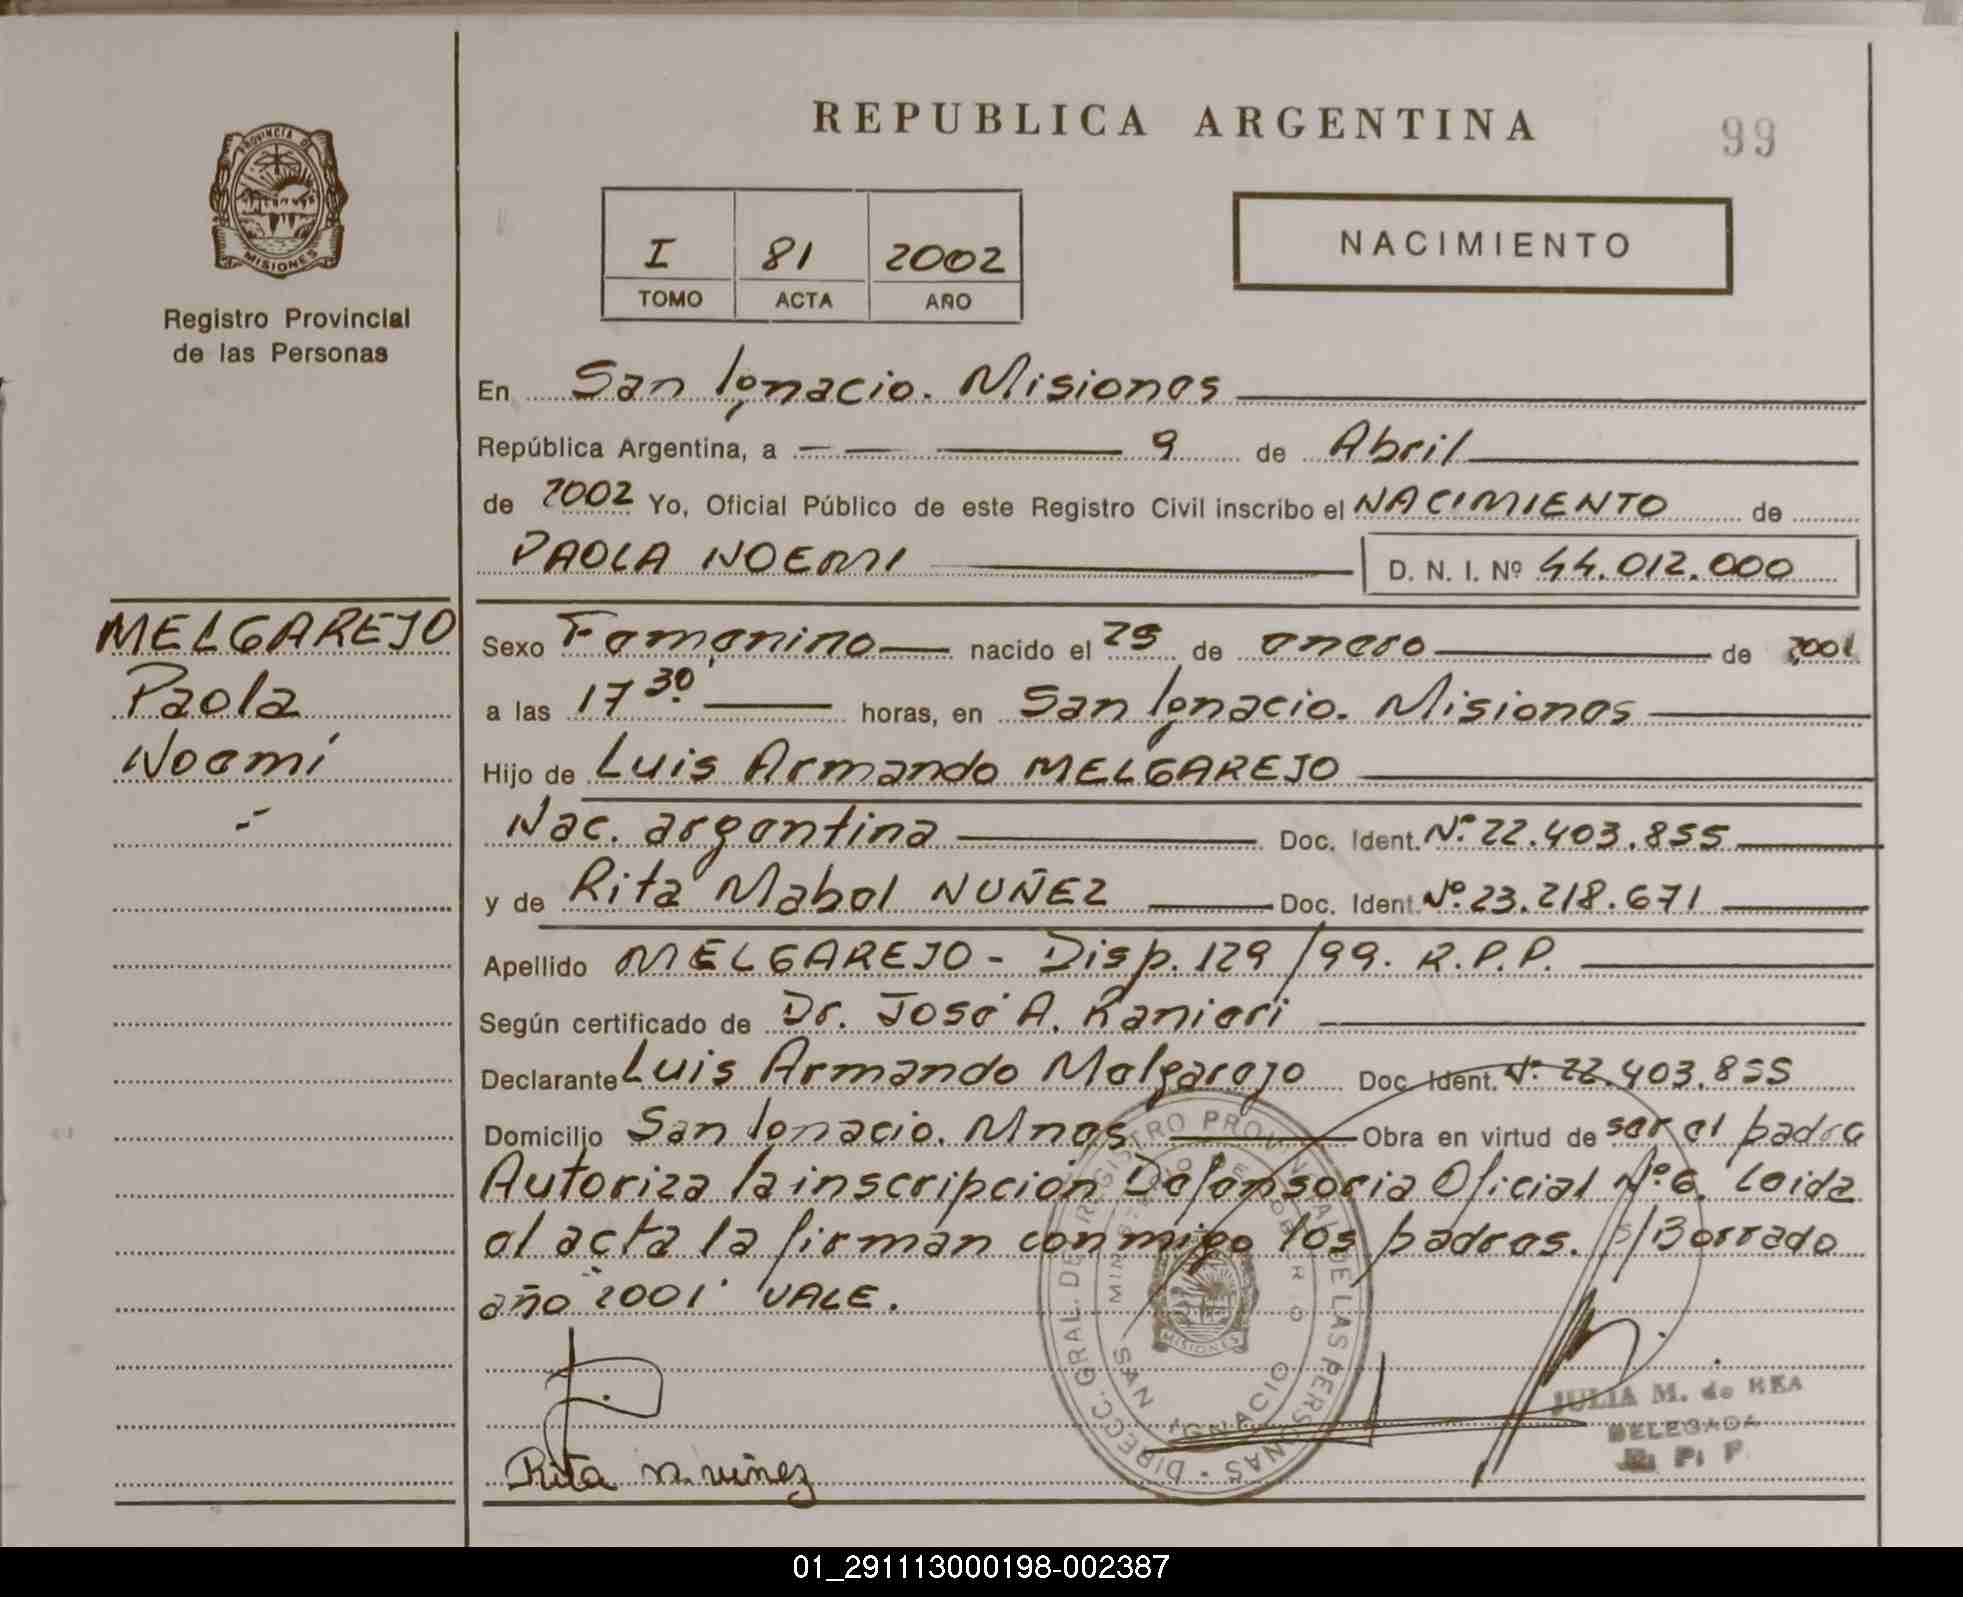 REPUBLICA ARGENTINA
99
PROVINCIA DE
MISIONES
Registro Provincial
de las Personas
I 81 2002
TOMO ACTA AÑO
NACIMIENTO
En San Ignacio. Misiones
República Argentina, a 9 de Abril
de 2002 Yo, Oficial Público de este Registro Civil inscribo el NACIMIENTO de
PAOLA NOEMI D. N. I. Nº 44.012.000
MELGAREJO
Paola
Noemí
Sexo Femenino nacido el 25 de enero de 2001
a las 17 30 horas, en San Ignacio. Misiones
Hijo de Luis Armando MELGAREJO
Nac. argentina Doc. Ident. Nº 22.403.855
y de Rita Mabel NUÑEZ Doc. Ident. Nº 23.218.671
Apellido MELGAREJO - Disp. 129/99. R.P.P.
Según certificado de Dr. José A. Ranieri
Declarante Luis Armando Melgarejo Doc. Ident. Nº 22.403.855
Domicilio San Ignacio. Mnes Obra en virtud de ser el padre
Autoriza la inscripción Defensoria Oficial Nº 6. Leida
el acta la firman conmigo los padres. S/Borrado
año "2001" VALE.
DIRECC. GRAL. DE REGISTRO PROVINCIAL DE LAS PERSONAS
SAN IGNACIO
MISIONES
Rita M. nuñez
JULIA M. de REA
DELEGADA
R. P. P.
01_291113000198-002387